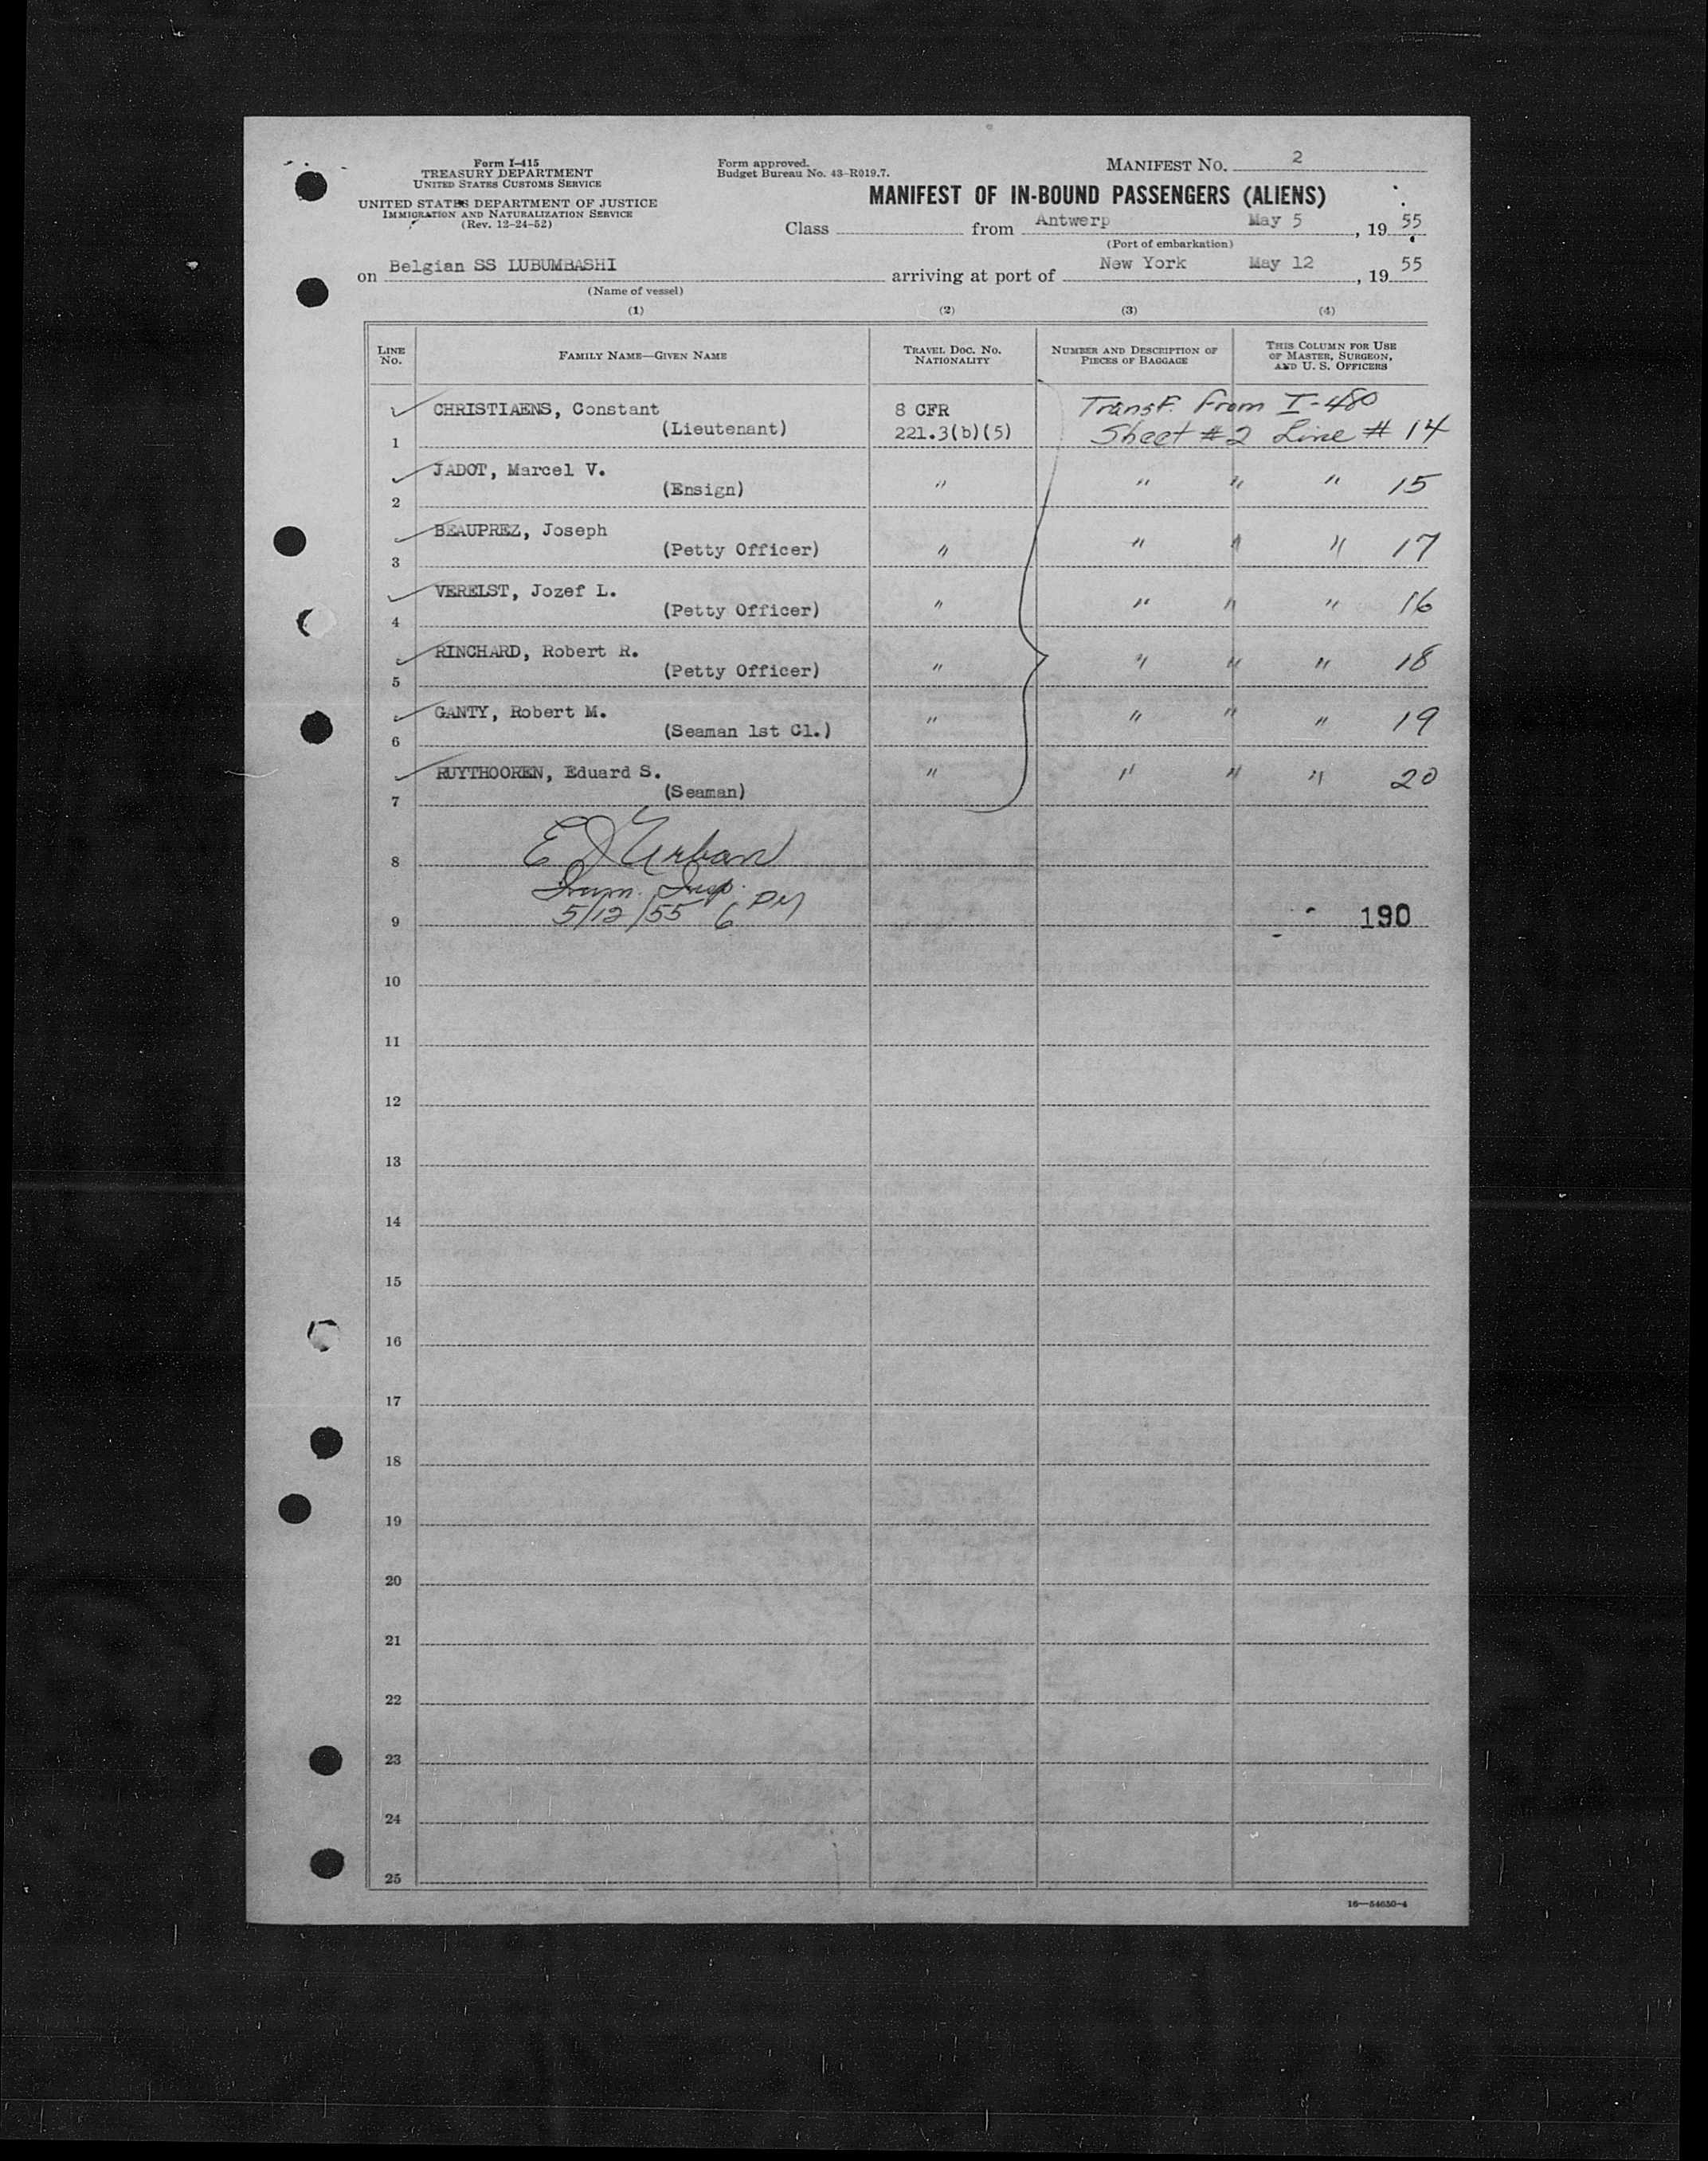 Form I-415
TREASURY DEPARTMENT
UNITED STATES CUSTOMS SERVICE
UNITED STATES DEPARTMENT OF JUSTICE
IMMIGRATION AND NATURALIZATION SERVICE
(Rev. 12-24-52)
Form approved.
Budget Bureau No. 43-R019.7.
MANIFEST No. 2
MANIFEST OF IN-BOUND PASSENGERS (ALIENS)
Class from Antwerp May 5, 19 55
(Port of embarkation)
on Belgian SS LUBUMBASHI arriving at port of New York May 12, 19 55
(Name of vessel)
(1) (2) (3) (4)
LINE No. FAMILY NAME—GIVEN NAME TRAVEL DOC. NO. NATIONALITY NUMBER AND DESCRIPTION OF PIECES OF BAGGAGE THIS COLUMN FOR USE OF MASTER, SURGEON, AND U. S. OFFICERS
CHRISTIAENS, Constant 8 CFR Transf. from I-480
1 (Lieutenant) 221.3(b)(5) Sheet #2 Line # 14
JADOT, Marcel V.
2 (Ensign) " " " " 15
BEAUPREZ, Joseph
3 (Petty Officer) " " " " 17
VERELST, Jozef L.
4 (Petty Officer) " " " " 16
RINCHARD, Robert R.
5 (Petty Officer) " " " " 18
GANTY, Robert M.
6 (Seaman 1st Cl.) " " " " 19
RUYTHOOREN, Eduard S. " " " " 20
7 (Seaman)
8 E J Urban
Imm. Insp.
9 5/12/55 6 PM 190
10
11
12
13
14
15
16
17
18
19
20
21
22
23
24
25
16—54650-4